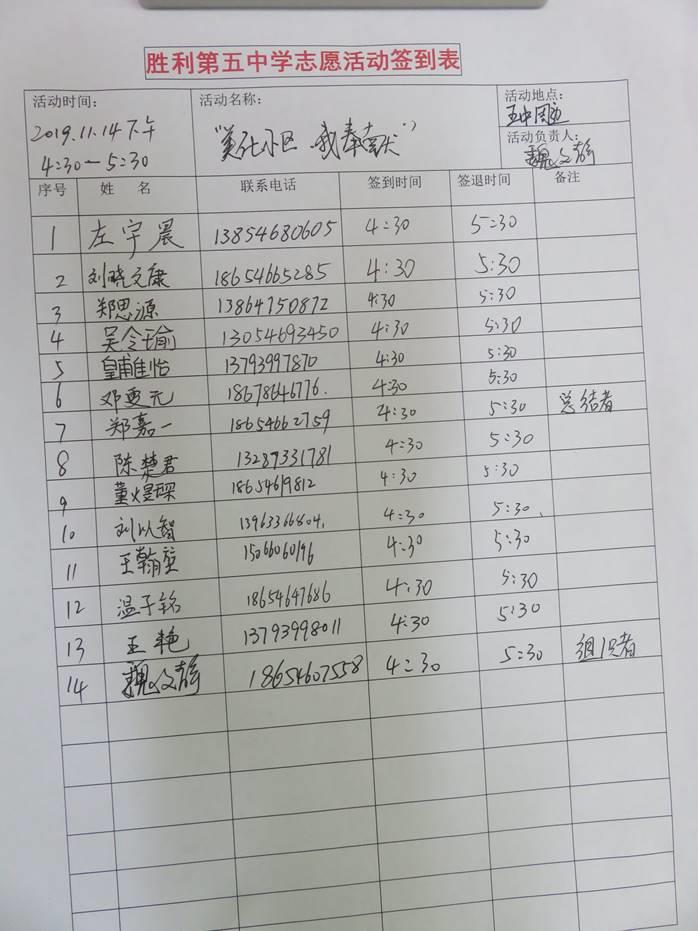 胜利第五中学志愿活动签到表
活动时间: 活动名称: 活动地点:
2019.11.14下午 4:30—5:30 "美化小区 我奉献" 五中周边
活动负责人:
序号 姓名 联系电话 签到时间 签退时间 备注
1 左宇晨 13854680605 4:30 5:30
2 刘晓文康 18654665285 4:30 5:30
3 郑思源 13864750872 4:30 5:30
4 吴令瑜 13054693450 4:30 5:30
5 皇甫佳怡 13793997870 4:30 5:30
6 18678646776. 4:30 5:30
7 郑嘉一 18654662759 4:30 5:30 总结者
8 陈楚君 13287331781 4:30 5:30
9 董煜琛 18654619812 4:30 5:30
10 刘以智 13963366804. 4:30 5:30.
11 王翰堃 15066060196 4:30 5:30
12 温子铭 18654647686 4:30 5:30
13 王艳 13793998011 4:30 5:30
14 18654607558 4:30 5:30 组织者